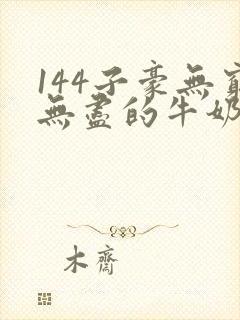 144子豪無窮
無盡的牛奶
木齋